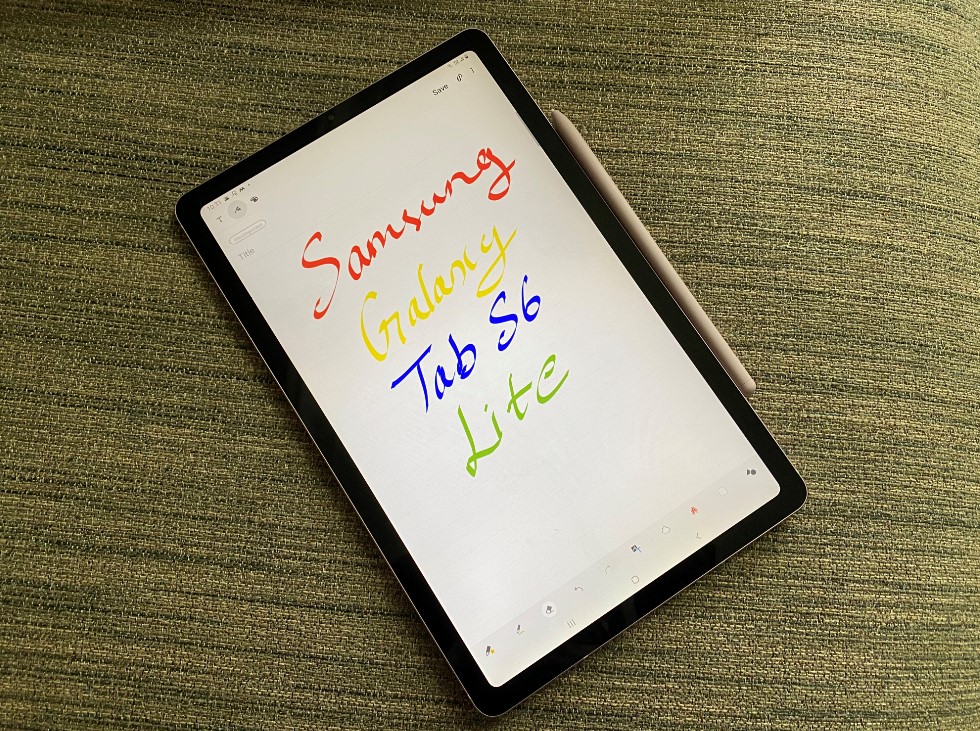 Save
T
Title
Samsung
Galaxy
Tab S6
Lite